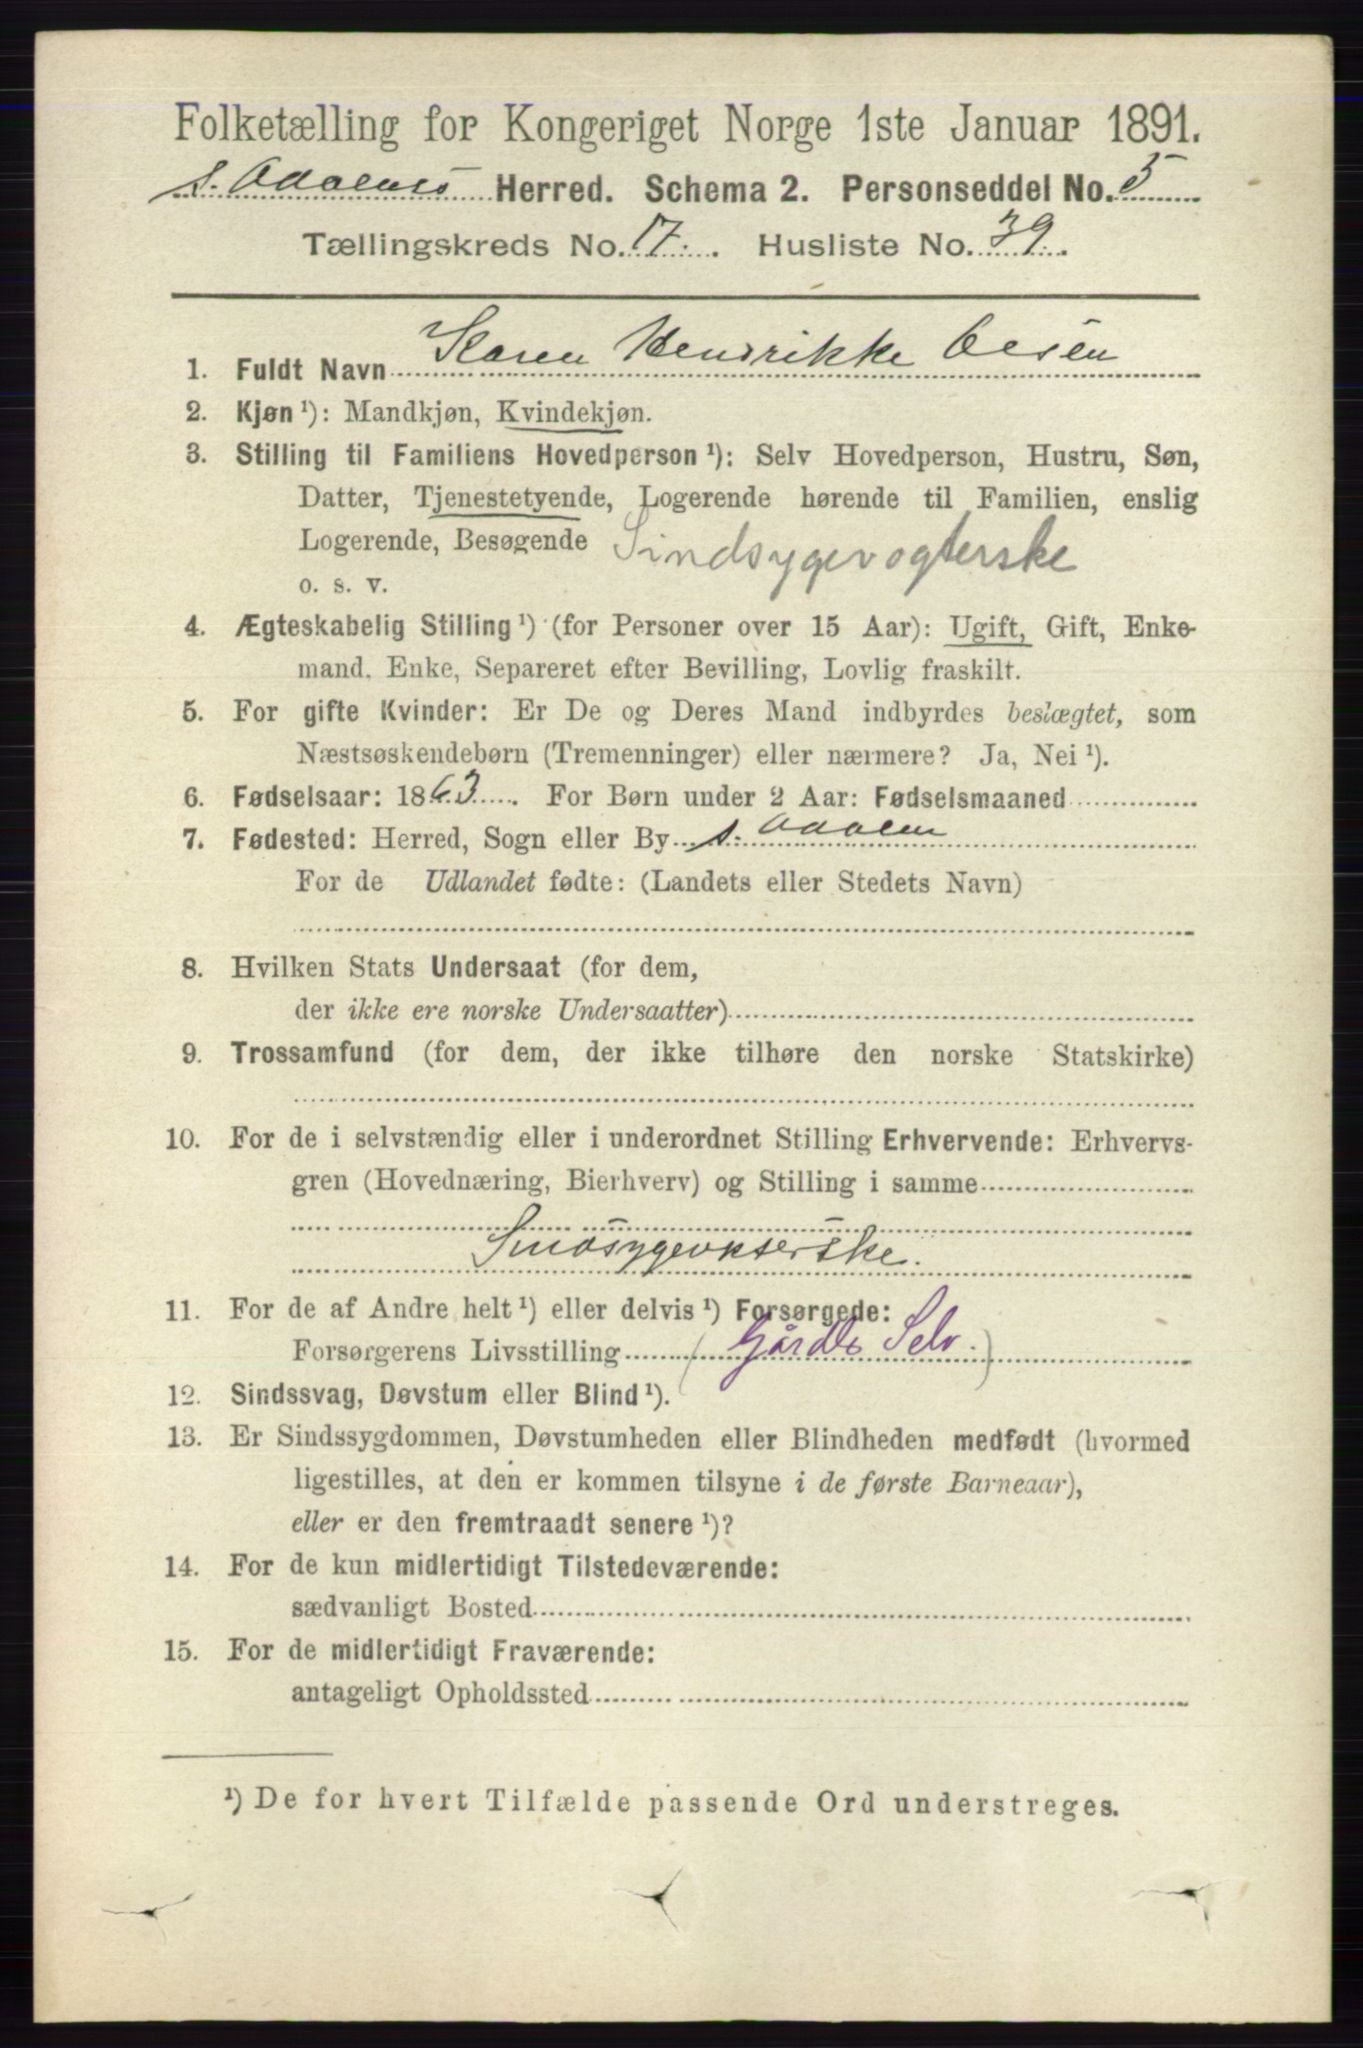 Folketælling for Kongeriget Norge 1ste Januar 1891.
s. Odalens Herred. Schema 2. Personseddel No. 5
Tællingskreds No. 17. Husliste No. 39.
1. Fuldt Navn Karen Hendrikke Olsen
2. Kjøn ¹): Mandkjøn, Kvindekjøn.
3. Stilling til Familiens Hovedperson ¹): Selv Hovedperson, Hustru, Søn,
Datter, Tjenestetyende, Logerende hørende til Familien, enslig
Logerende, Besøgende Sindsygevogterske
o. s. v.
4. Ægteskabelig Stilling ¹) (for Personer over 15 Aar): Ugift, Gift, Enke-
mand, Enke, Separeret efter Bevilling, Lovlig fraskilt.
5. For gifte Kvinder: Er De og Deres Mand indbyrdes beslægtet, som
Næstsøskendebørn (Tremenninger) eller nærmere? Ja, Nei ¹).
6. Fødselsaar: 1863. For Børn under 2 Aar: Fødselsmaaned
7. Fødested: Herred, Sogn eller By s. Odalen
For de Udlandet fødte: (Landets eller Stedets Navn)
8. Hvilken Stats Undersaat (for dem,
der ikke ere norske Undersaatter)
9. Trossamfund (for dem, der ikke tilhøre den norske Statskirke)
10. For de i selvstændig eller i underordnet Stilling Erhvervende: Erhvervs-
gren (Hovednæring, Bierhverv) og Stilling i samme
Sindsygevokterske.
11. For de af Andre helt ¹) eller delvis ¹) Forsørgede:
Forsørgerens Livsstilling (Gårdb Selv.)
12. Sindssvag, Døvstum eller Blind ¹).
13. Er Sindssygdommen, Døvstumheden eller Blindheden medfødt (hvormed
ligestilles, at den er kommen tilsyne i de første Barneaar),
eller er den fremtraadt senere ¹)?
14. For de kun midlertidigt Tilstedeværende:
sædvanligt Bosted
15. For de midlertidigt Fraværende:
antageligt Opholdssted
¹) De for hvert Tilfælde passende Ord understreges.